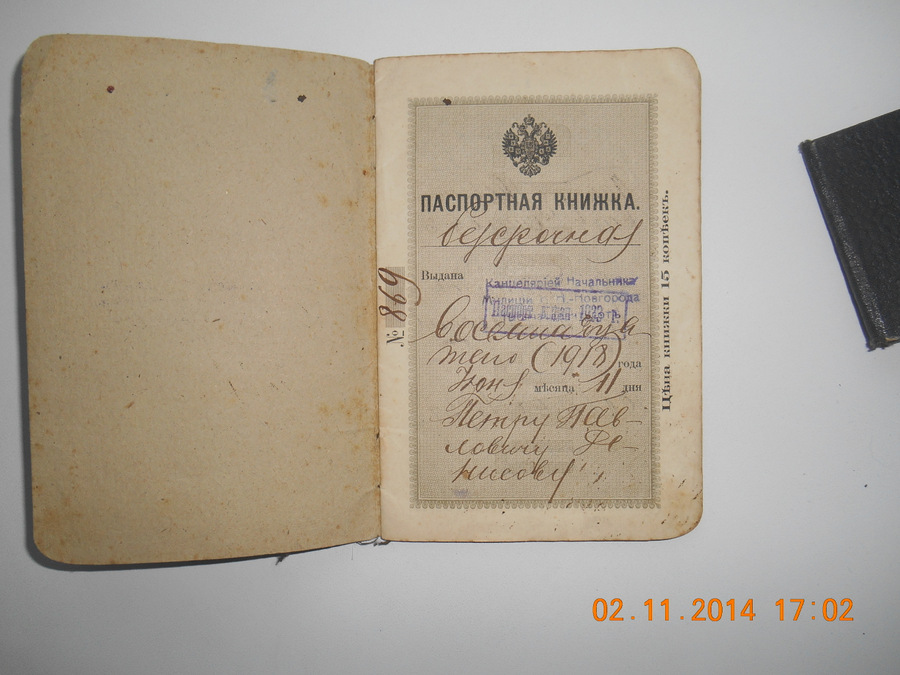 ПАСПОРТНАЯ КНИЖКА.
безсрочная
Выдана
Канцелярией Начальника
Милиции Новгорода
восемнадца
того (1918) года
Июня мѣсяца 11 дня
Петру Пав-
ловичу Де-
нисову
№ 869
Цѣна книжки 15 копѣекъ.
02.11.2014 17:02